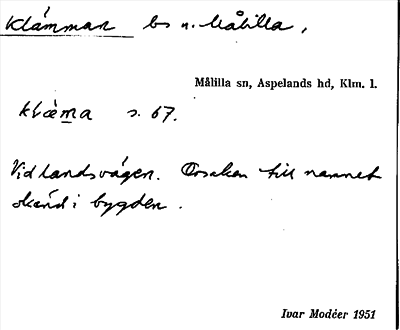 Klämman bs n. Målilla,
Målilla sn, Aspelands hd, Klm. l.
klæ̀ma s. 67.
Vid landsvägen. Orsaken till namnet
okänd i bygden.
Ivar Modéer 1951